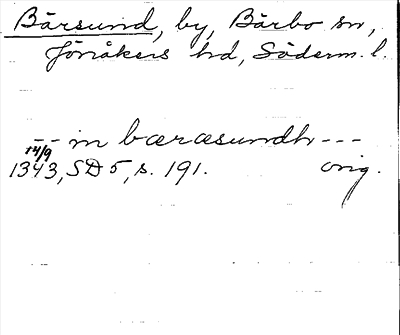 Bärsund, by, Bärbo sn,
Jönåkers hd, Söderm. l.
-- in baræsundh ---
14/9
1343, SD 5, s. 191. orig.